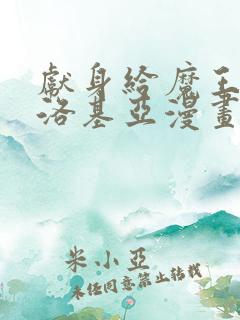 獻身給魔王
洛基亞漫畫
米小亞
未经同意禁止转载